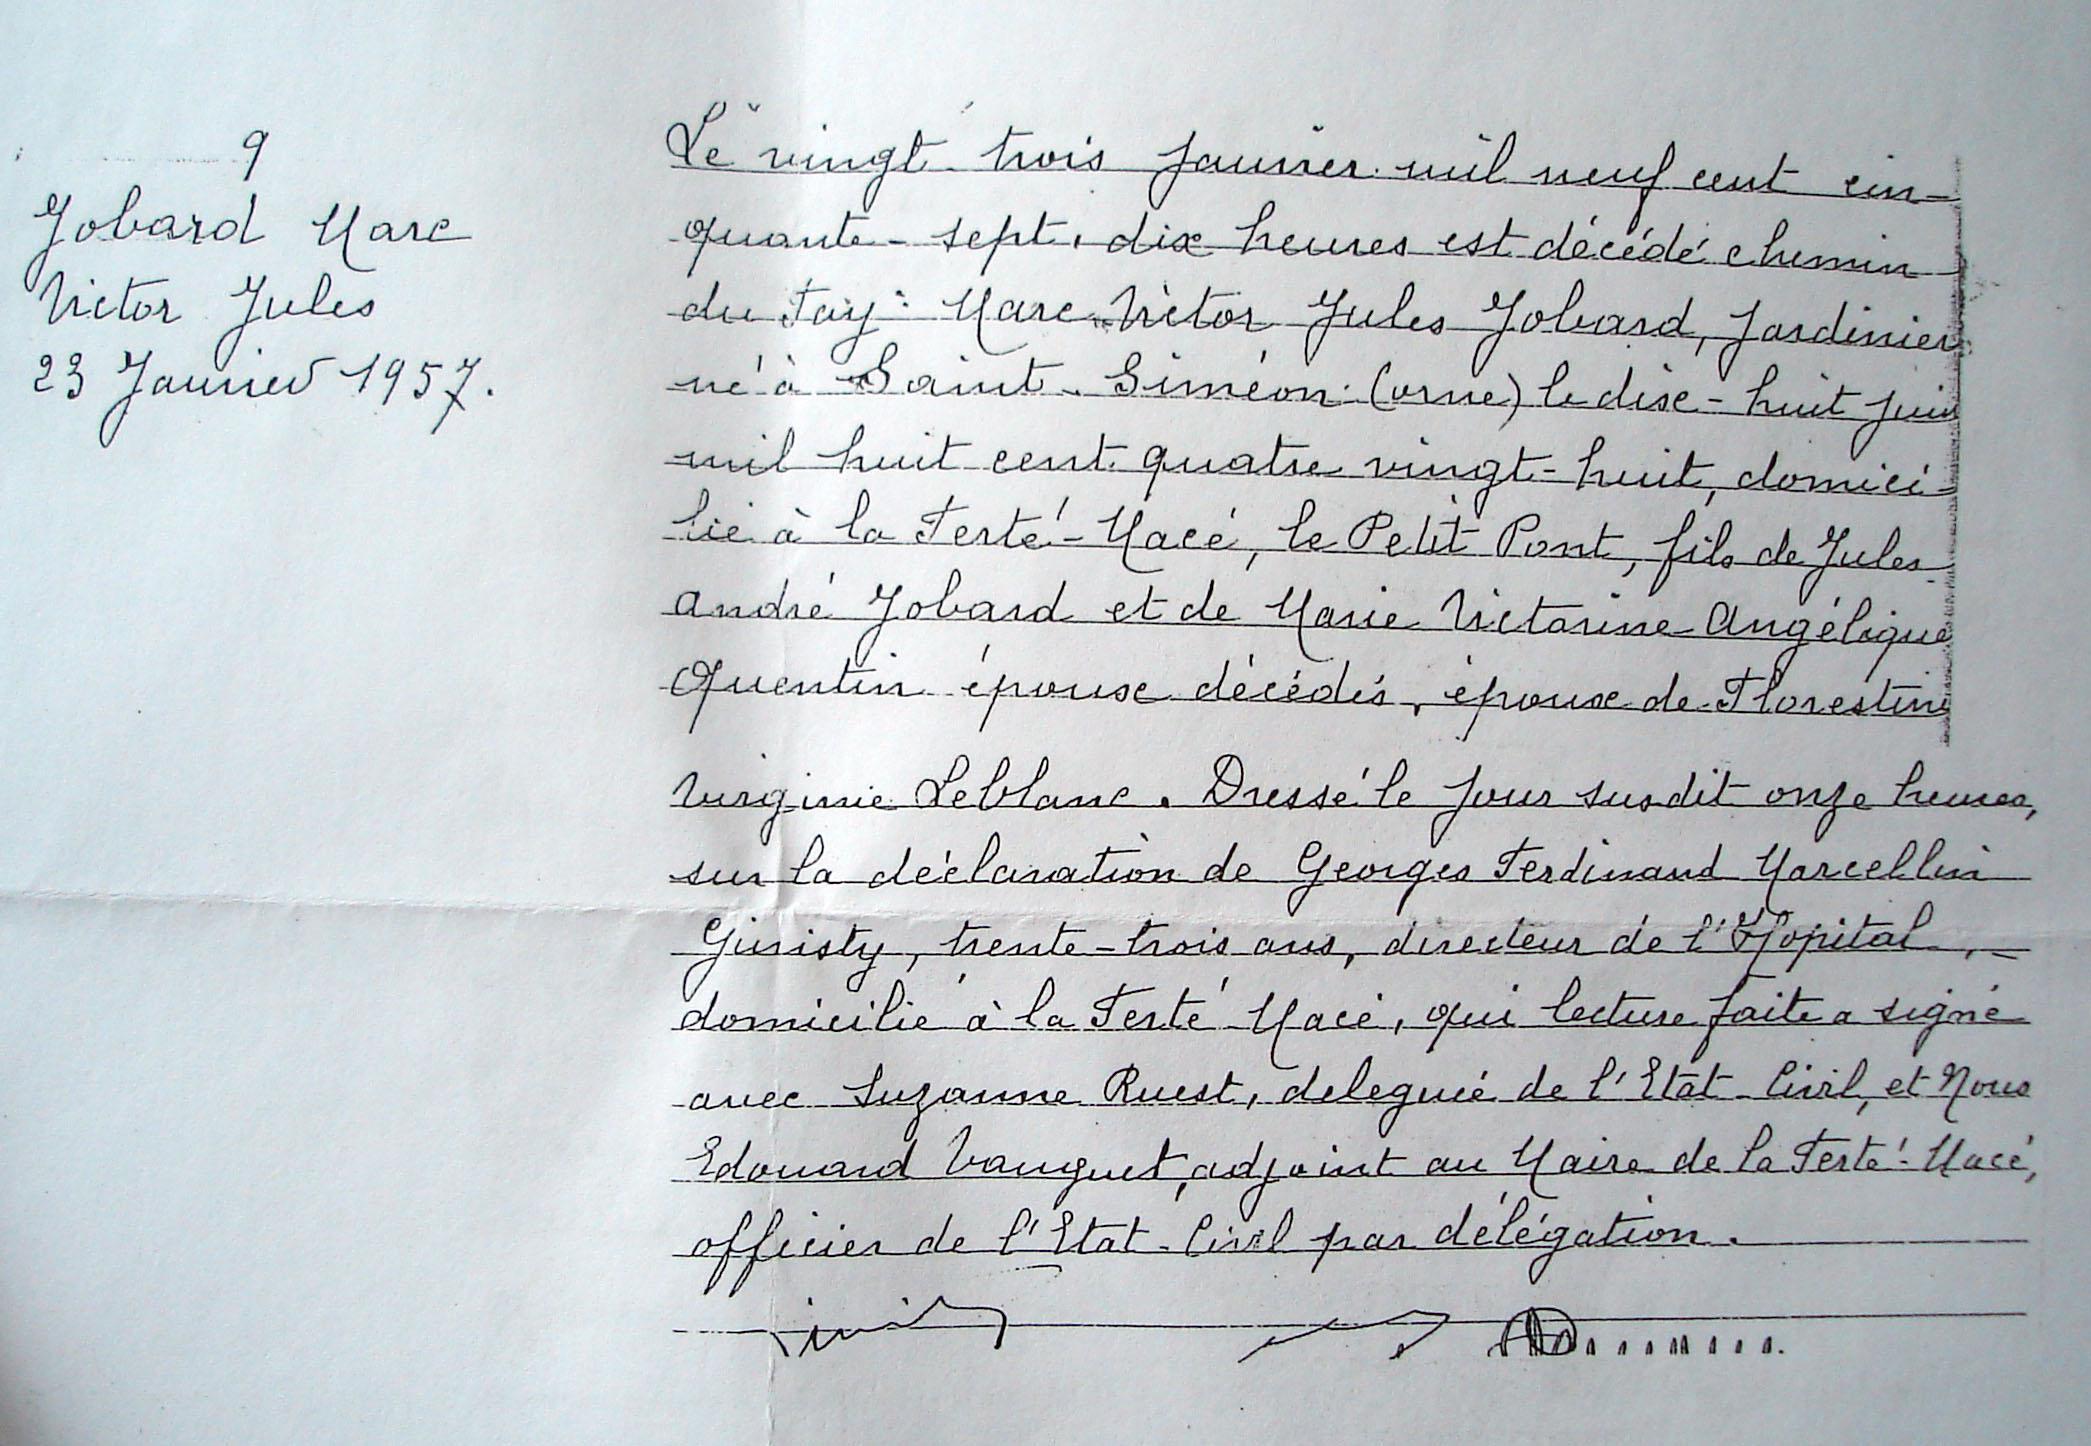 9
Jobard Marc
Victor Jules
23 Janvier 1957.
Le vingt trois janvier mil neuf cent cin-
quante-sept, dix heures est décédé chemin
du Fay: Marc Victor Jules Jobard, Jardinier
né à Saint-Siméon (orne) le dix-huit juin
mil huit cent quatre vingt-huit, domici-
lié à la Ferté-Macé, le Petit Pont, fils de Jules
André Jobard et de Marie Victorine Angélique
Quentin époux décédés, époux de Florestine
Virginie Leblanc. Dressé le jour susdit onze heures,
sur la déclaration de Georges Ferdinand Marcellin
trente-trois ans, directeur de l'Hopital,
domicilié à la Ferté Macé, qui lecture faite a signé
avec Suzanne Ruest, deleguée de l'Etat-Civil, et Nous
Edouard adjoint au Maire de la Ferté-Macé,
officier de l'Etat-Civil par délégation.